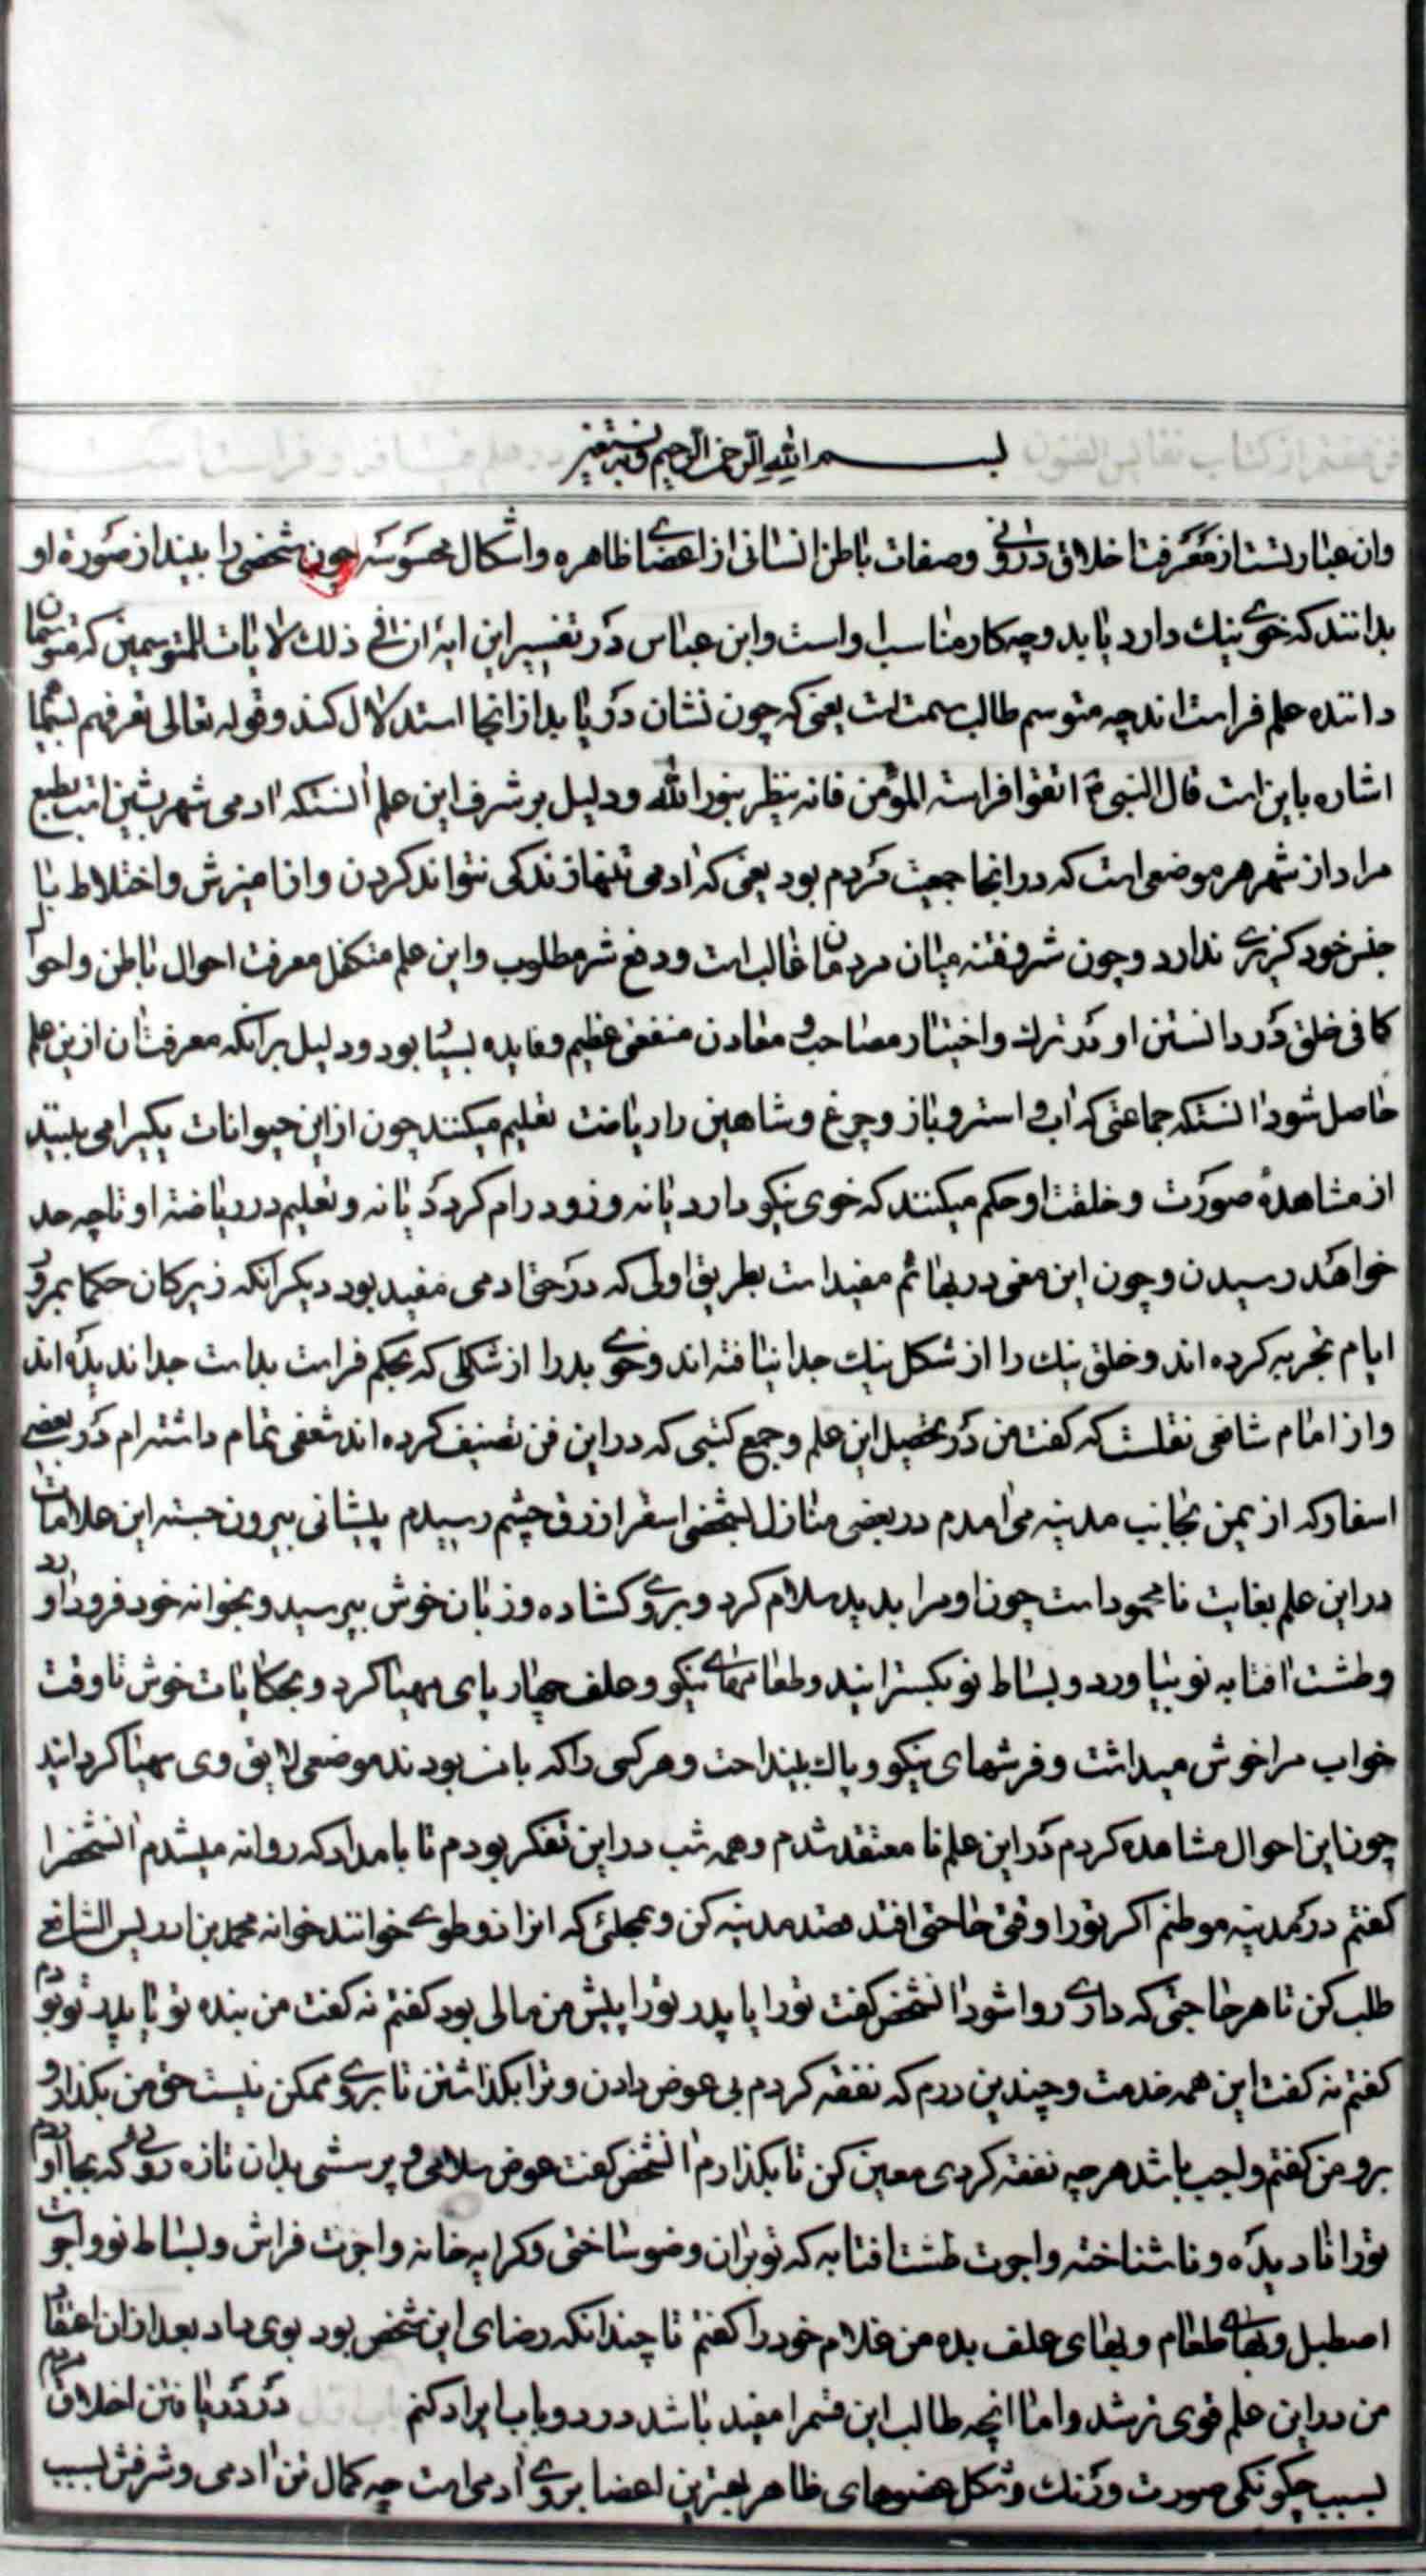 فن هفتم از کتاب نفایس الفنون بسم الله الرحمن الرحیم وبه نستعین در علم قیافه و فراست است
وان عبارتست از معرفت اخلاق درونی وصفات باطن انسانی از اعضای ظاهره واشکال محسوسه چون شخصی را ببیند از صورة او
بدانند که خوی نیک دارد یا بد وچه کار مناسب او است وابن عباس در تفسیر این ایه ان فی ذلک لایات للمتوسمین که متوسمان
داننده علم فراست اند چه متوسم طالب سمت است یعنی که چون نشان دریابد از انجا استدلال کند وقوله تعالی تعرفهم بسیماهم
اشاره باین است قال النبی ع اتقوا فراسة المؤمن فانه ینظر بنور الله ودلیل بر شرف این علم انستکه ادمی شهرنشین است بطبع
مراد از شهر هر موضعی است که در انجا جمعیت مردم بود یعنی که ادمی تنها زندکی نتواند کردن واز امیزش واختلاط با
جنس خود کزیری ندارد وچون شر وفتنه میان مردمان غالب است ودفع شر مطلوب واین علم متکفل معرفت احوال باطن واحوال
کافی خلق در دانستن او در ترک واختیار مصاحب و معادن منفعتی عظیم وفایده بسیار بود ودلیل بر انکه معرفت ان ازین علم
حاصل شود انستکه جماعتی که اسب و استر و باز و چرغ و شاهین را ریاضت تعلیم میکنند چون از این حیوانات یکیرا می بینند
از مشاهدهٔ صورت وخلقت او حکم میکنند که خوی نیکو دارد یا نه وزود رام کردد یا نه وتعلیم در ریاضه او تا چه حد
خواهد رسیدن وچون این معنی در بهائم مفید است بطریق اولی که در حق ادمی مفید بود دیکر انکه زیرکان حکما بمرور
ایام تجربه کرده اند وخلق نیک را از شکل نیک جدا نیافته اند وخوی بد را از شکلی که بحکم فراست بد است جدا ندیده اند
واز امام شافعی نقلست که کفت من در تحصیل این علم وجمع کتبی که در این فن تصنیف کرده اند شعفی تمام داشته ام در بعضی
اسفار که از یمن بجانب مدینه می امدم در بعضی منازل بشخصی اسفر ازرق چشم رسیدم پیشانی بیرون جسته این علامات
در این علم بغایت نامحمود است چون او مرا بدید سلام کرد وبروی کشاده وزبان خوش بپرسید وبخوانه خود فرود اورد
وطشت افتابه نو بیاورد وبساط نو بکسترانید وطعامهای نیکو وعلف چهار پای مهیا کرد وبحکایات خوش تا وقت
خواب مرا خوش میداشت وفرشهای نیکو وپاک بینداخت وهر کسی را که با من بودند موضعی لایق وی مهیا کردانید
چون این احوال مشاهده کردم در این علم نا معتقد شدم وهمه شب در این تفکر بودم تا بامداد که روانه میشدم انشخصرا
کفتم در مدینه موطنم اکر تورا وقتی حاجتی افتد قصد مدینه کن وبمحلتی که انرا ذو طوی خوانند خوانه محمد بن ادریس الشافعی
طلب کن تا هر حاجتی که داری روا شود انشخص کفت تورا یا پدر تورا پیش من مالی بود کفتم نه کفت من بنده تو یا پدر تو بودم
کفتم نه کفت این همه خدمت وچندین درم که نفقه کردم بی عوض دادن وترا بکذاشتن تا بروی ممکن نیست حق من بکذار و
برو من کفتم واجب باشد هر چه نفقه کردی معین کن تا بکذارم انشخص کفت عوض سلامی و پرسشی بدان تازه روئی که بجا اوردم
تورا نا دیده ونا شناخته واجرت طشت افتابه که تو بران وضو ساختی وکرایه خانه واجرت فراش وبساط نو واجرت
اصطبل وبهای طعام وبهای علف بده من غلام خود را کفتم تا چندانکه رضای این شخص بود بوی داد بعد از ان اعتقاد
من در این علم قوی تر شد واما انچه طالب این قسم را مفید باشد در دو باب ایراد کنم باب اول در دریافتن اخلاق مردم
بسبب چکونکی صورت ورنک وشکل عضوهای ظاهر بهترین اعضا بروی ادمی است چه کمال تن ادمی وشرفش بسبب